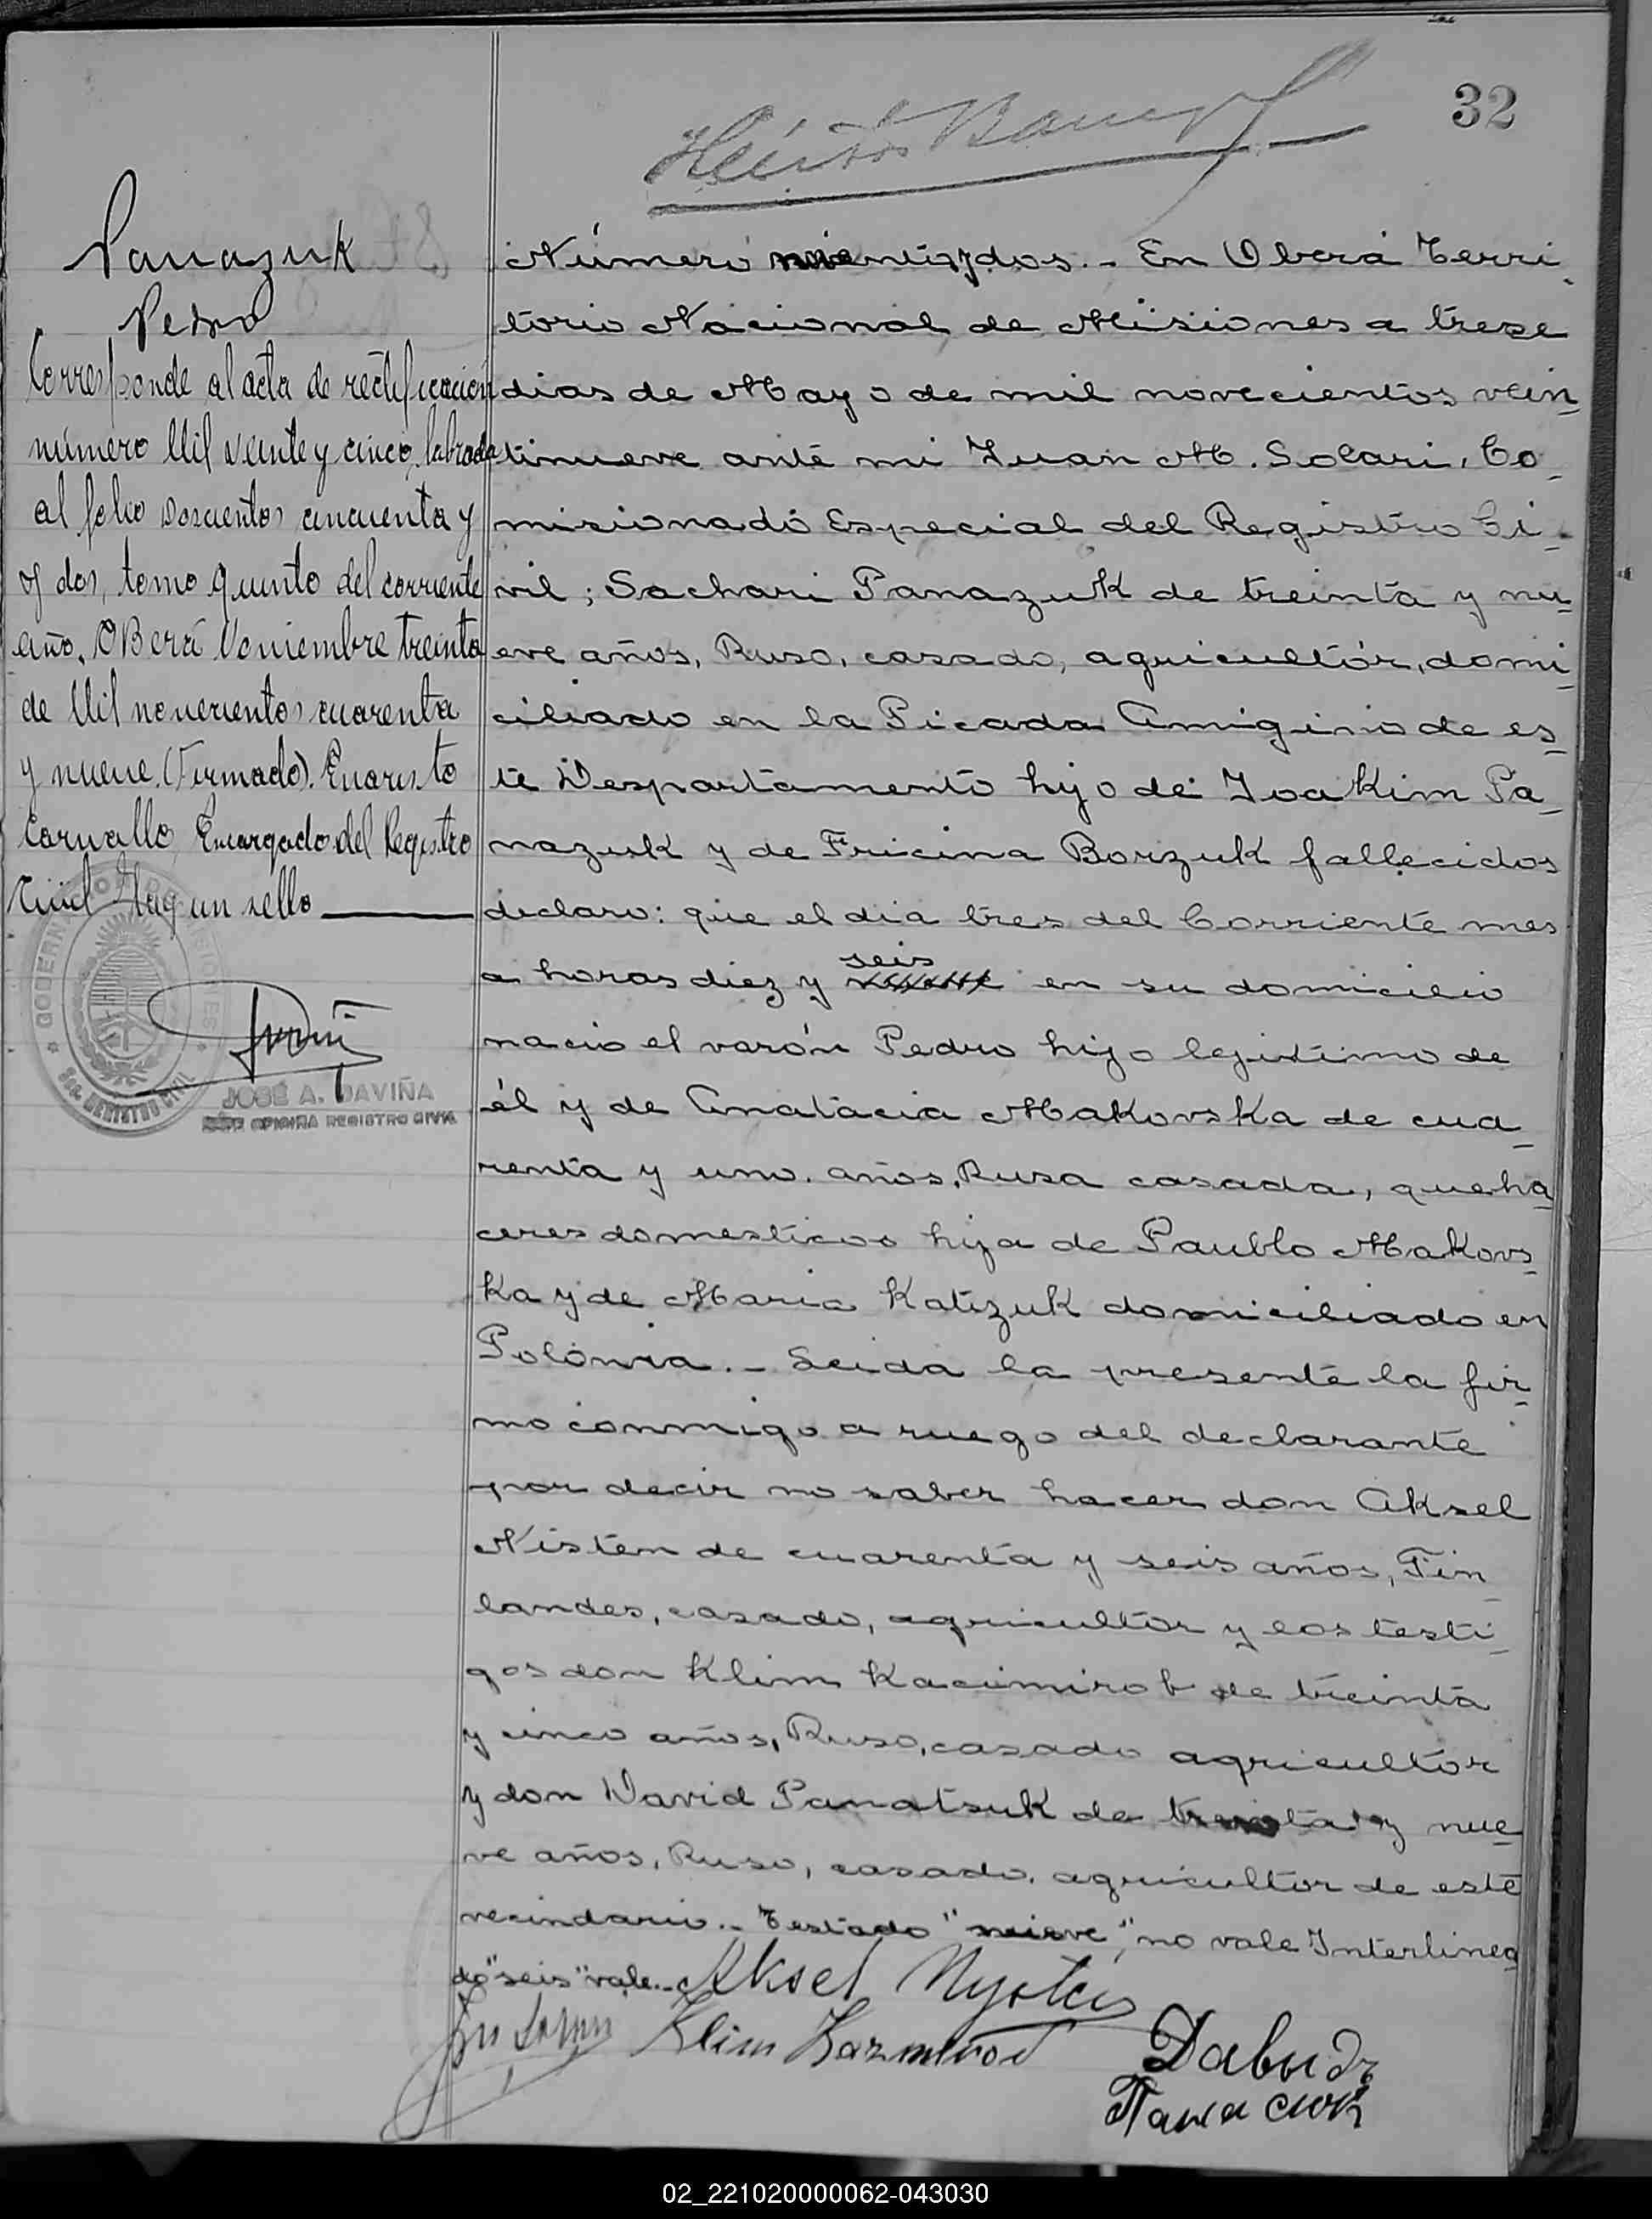 32
Panazuk
Pedro
Corresponde al acta de rectificación
número Mil veinte y cinco, labrada
al folio doscientos cincuenta y
y dos, tomo quinto del corriente
año. OBerá Noviembre treinta
de Mil novecientos cuarenta
y nueve. (Firmado). Evaristo
Carvallo, Encargado del Registro
Civil Hay un sello
JOSÉ A. DAVIÑA
JEFE OFICINA REGISTRO CIVIL
Número veintiydos.- En Oberá Terri-
torio Nacional de Misiones a trese
dias de Mayo de mil novecientos vein-
tinueve ante mi Juan M. Solari, Co-
misionado Especial del Registro Ci-
vil; Sachari Panazuk de treinta y nu-
eve años, Ruso, casado, agricultór, domi-
ciliado en la Picada Amigirio de es-
te Despartamento hijo de Joakim Pa-
nazuk y de Fricina Borzuk fallecidos
declaro: que el dia tres del Corriente mes
a horas diez y seis en su domicilio
nacio el varón Pedro hijo legitimo de
él y de Anatacia Makovska de cua-
renta y uno. años, Rusa casada, queha
ceres domesticos hija de Paublo Makovs-
ka y de Maria Katizuk domiciliado en
Polónia.- Leida la presente la fir-
mo conmigo a ruego del declarante
por decir no saber hacer don Aksel
Nisten de cuarenta y seis años, Fin-
landes, casado, agricultor y los testi-
gos don Klim Kacimirob de treinta
y cinco años, Ruso, casado agricultor
y don David Panatsuk de treinta y nue-
ve años, Ruso, casado, agricultor de este
vecindario.- Testado "nueve", no vale Interlinea
do "seis" vale.- Aksel
Klim
Давыдъ
Панасюк
02_221020000062-043030